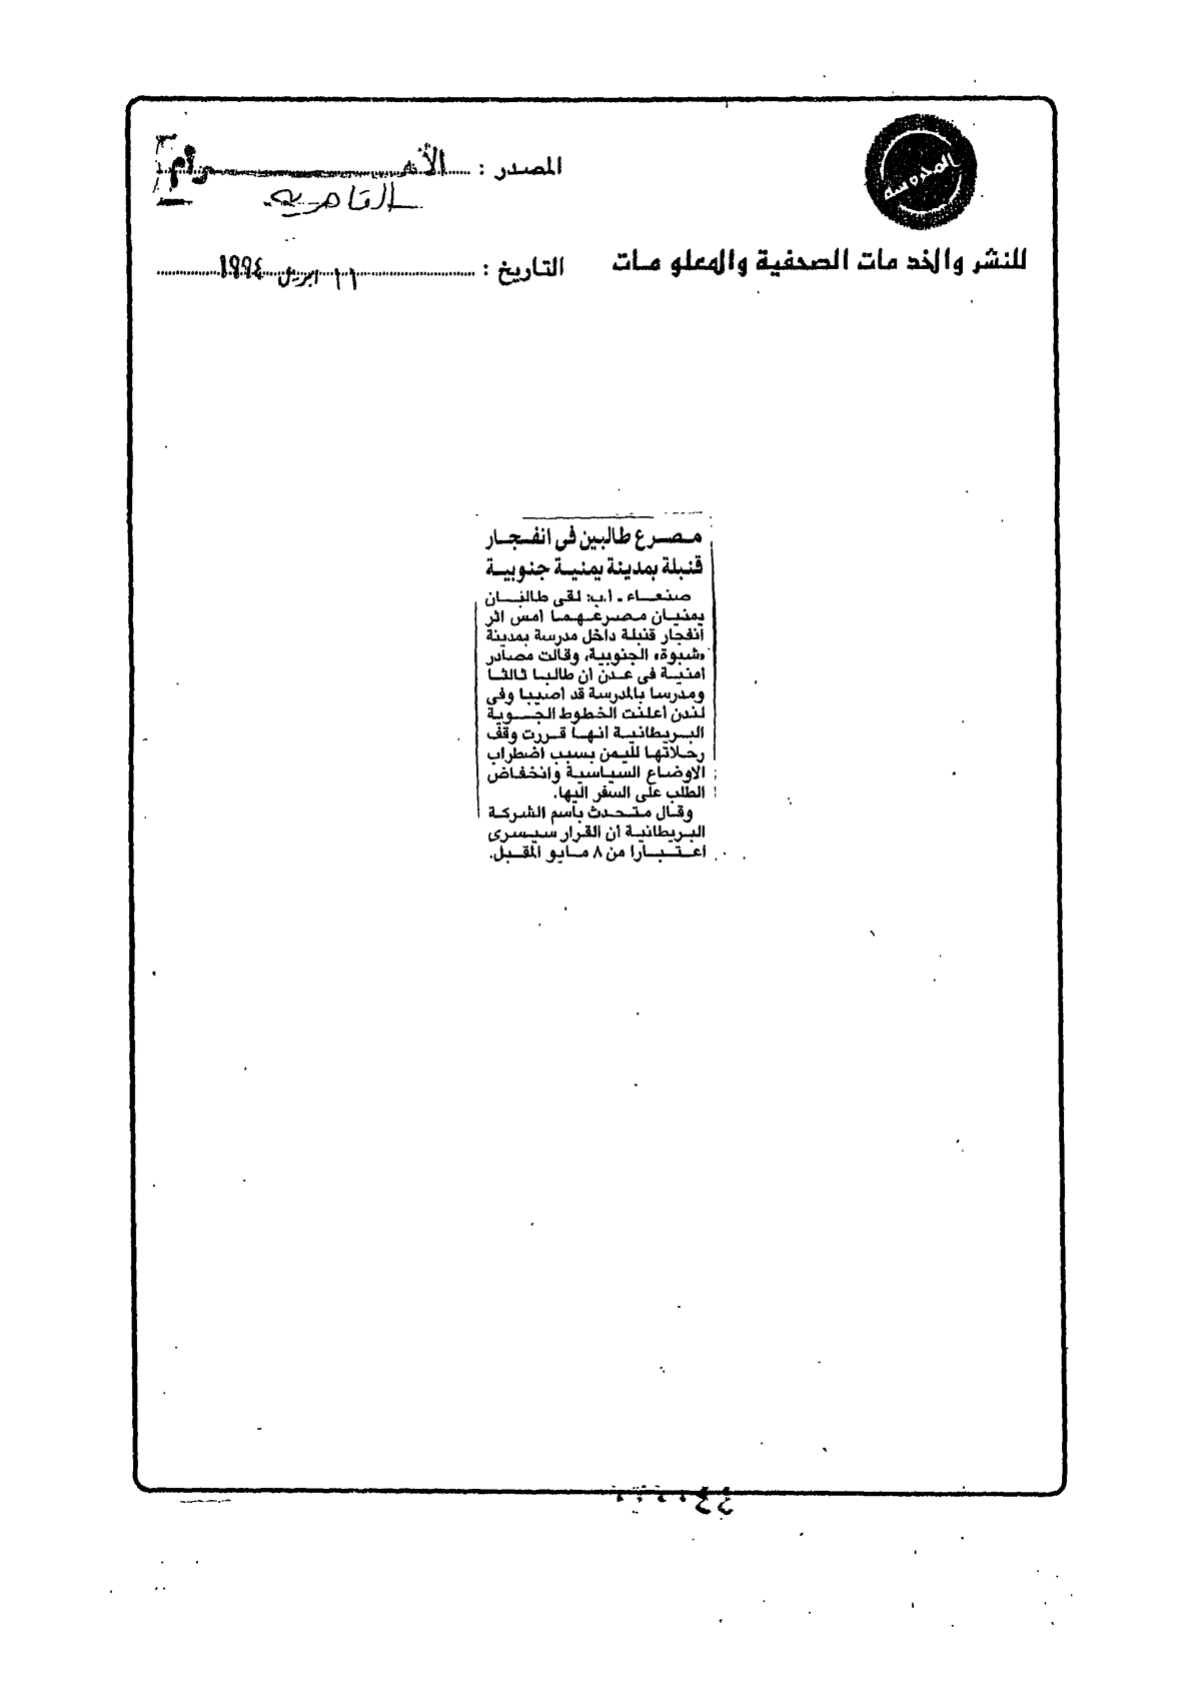 المصدر : الأهرام
القاهرية
المحروسة
للنشر والخدمات الصحفية والمعلومات
التاريخ : ١١ ابريل ١٩٩٤
مصرع طالبين فى انفجار
قنبلة بمدينة يمنية جنوبية
صنعاء ـ ا.ب: لقى طالبان
يمنيان مصرعهما أمس اثر
انفجار قنبلة داخل مدرسة بمدينة
«شبوة» الجنوبية، وقالت مصادر
امنية فى عدن ان طالبا ثالثا
ومدرسا بالمدرسة قد اصيبا وفى
لندن أعلنت الخطوط الجوية
البريطانية انها قررت وقف
رحلاتها لليمن بسبب اضطراب
الاوضاع السياسية وانخفاض
الطلب على السفر اليها.
وقال متحدث بأسم الشركة
البريطانية ان القرار سيسرى
اعتبارا من ٨ مايو المقبل.